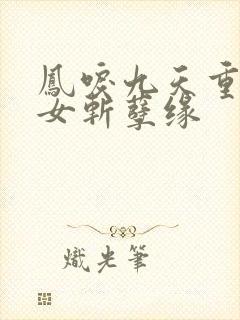 鳳唳九天重
女斬孽缘
熾光筆